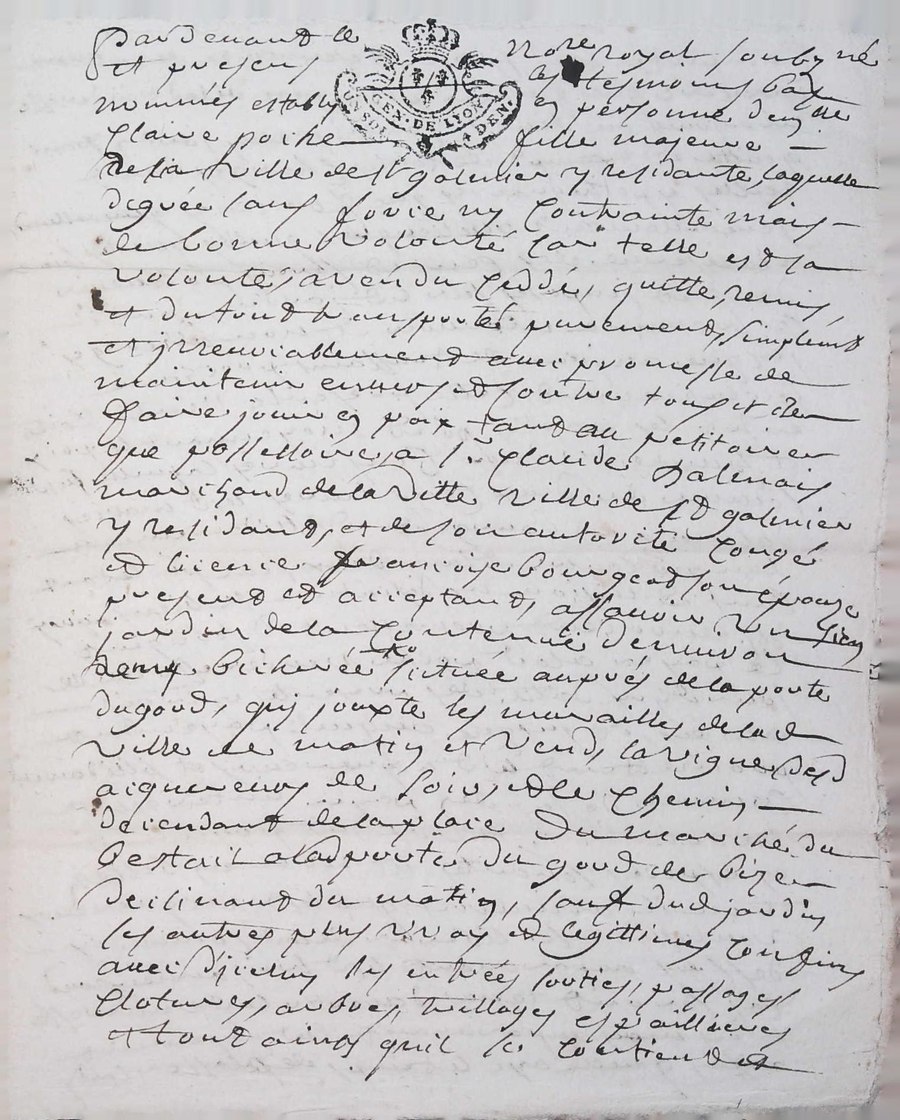 Pardevant le Nore royal soubzné
et presens les tesmoins bas
nommés estably en personne delle
Claire poche fille majeure
de la ville de St galmier y residante, laquelle
de grée sans force ny contrainte mais
de bonne volonté car telle est sa
volonté, a vendu ceddé, quitte, remis
et du tout transporté purement, simplemt
et irrevocablement avec promesse de
maintenir envers et contre tous et de
faire jouir en paix tant au petitoire
que possessoire, a sr Claude Dalmais
marchand de la ditte ville de St galmier
y residant, et de son autorité congé
et licence francoise bourgeat son épouze
present et acceptant, assavoir un sien
jardin de la contenue d'environ
demy bicherée située aupres de la porte
du goud, qui jouxte les murailles de lad
ville de matin et vend, la vigne desd
acquereurs de soir, et le chemin
decendant de la place du marché du
bestail a lad porte du goud de bize
declinant du matin, sauf dud jardin
ses autres plus vrays et legittimes confins
avec d'iceluy ses entrées sorties, passages
clotures, arbres, treillages espailliers
et tout ainsy quil se contient et
GEN. DE LYON
UN SOL 4 DEN.